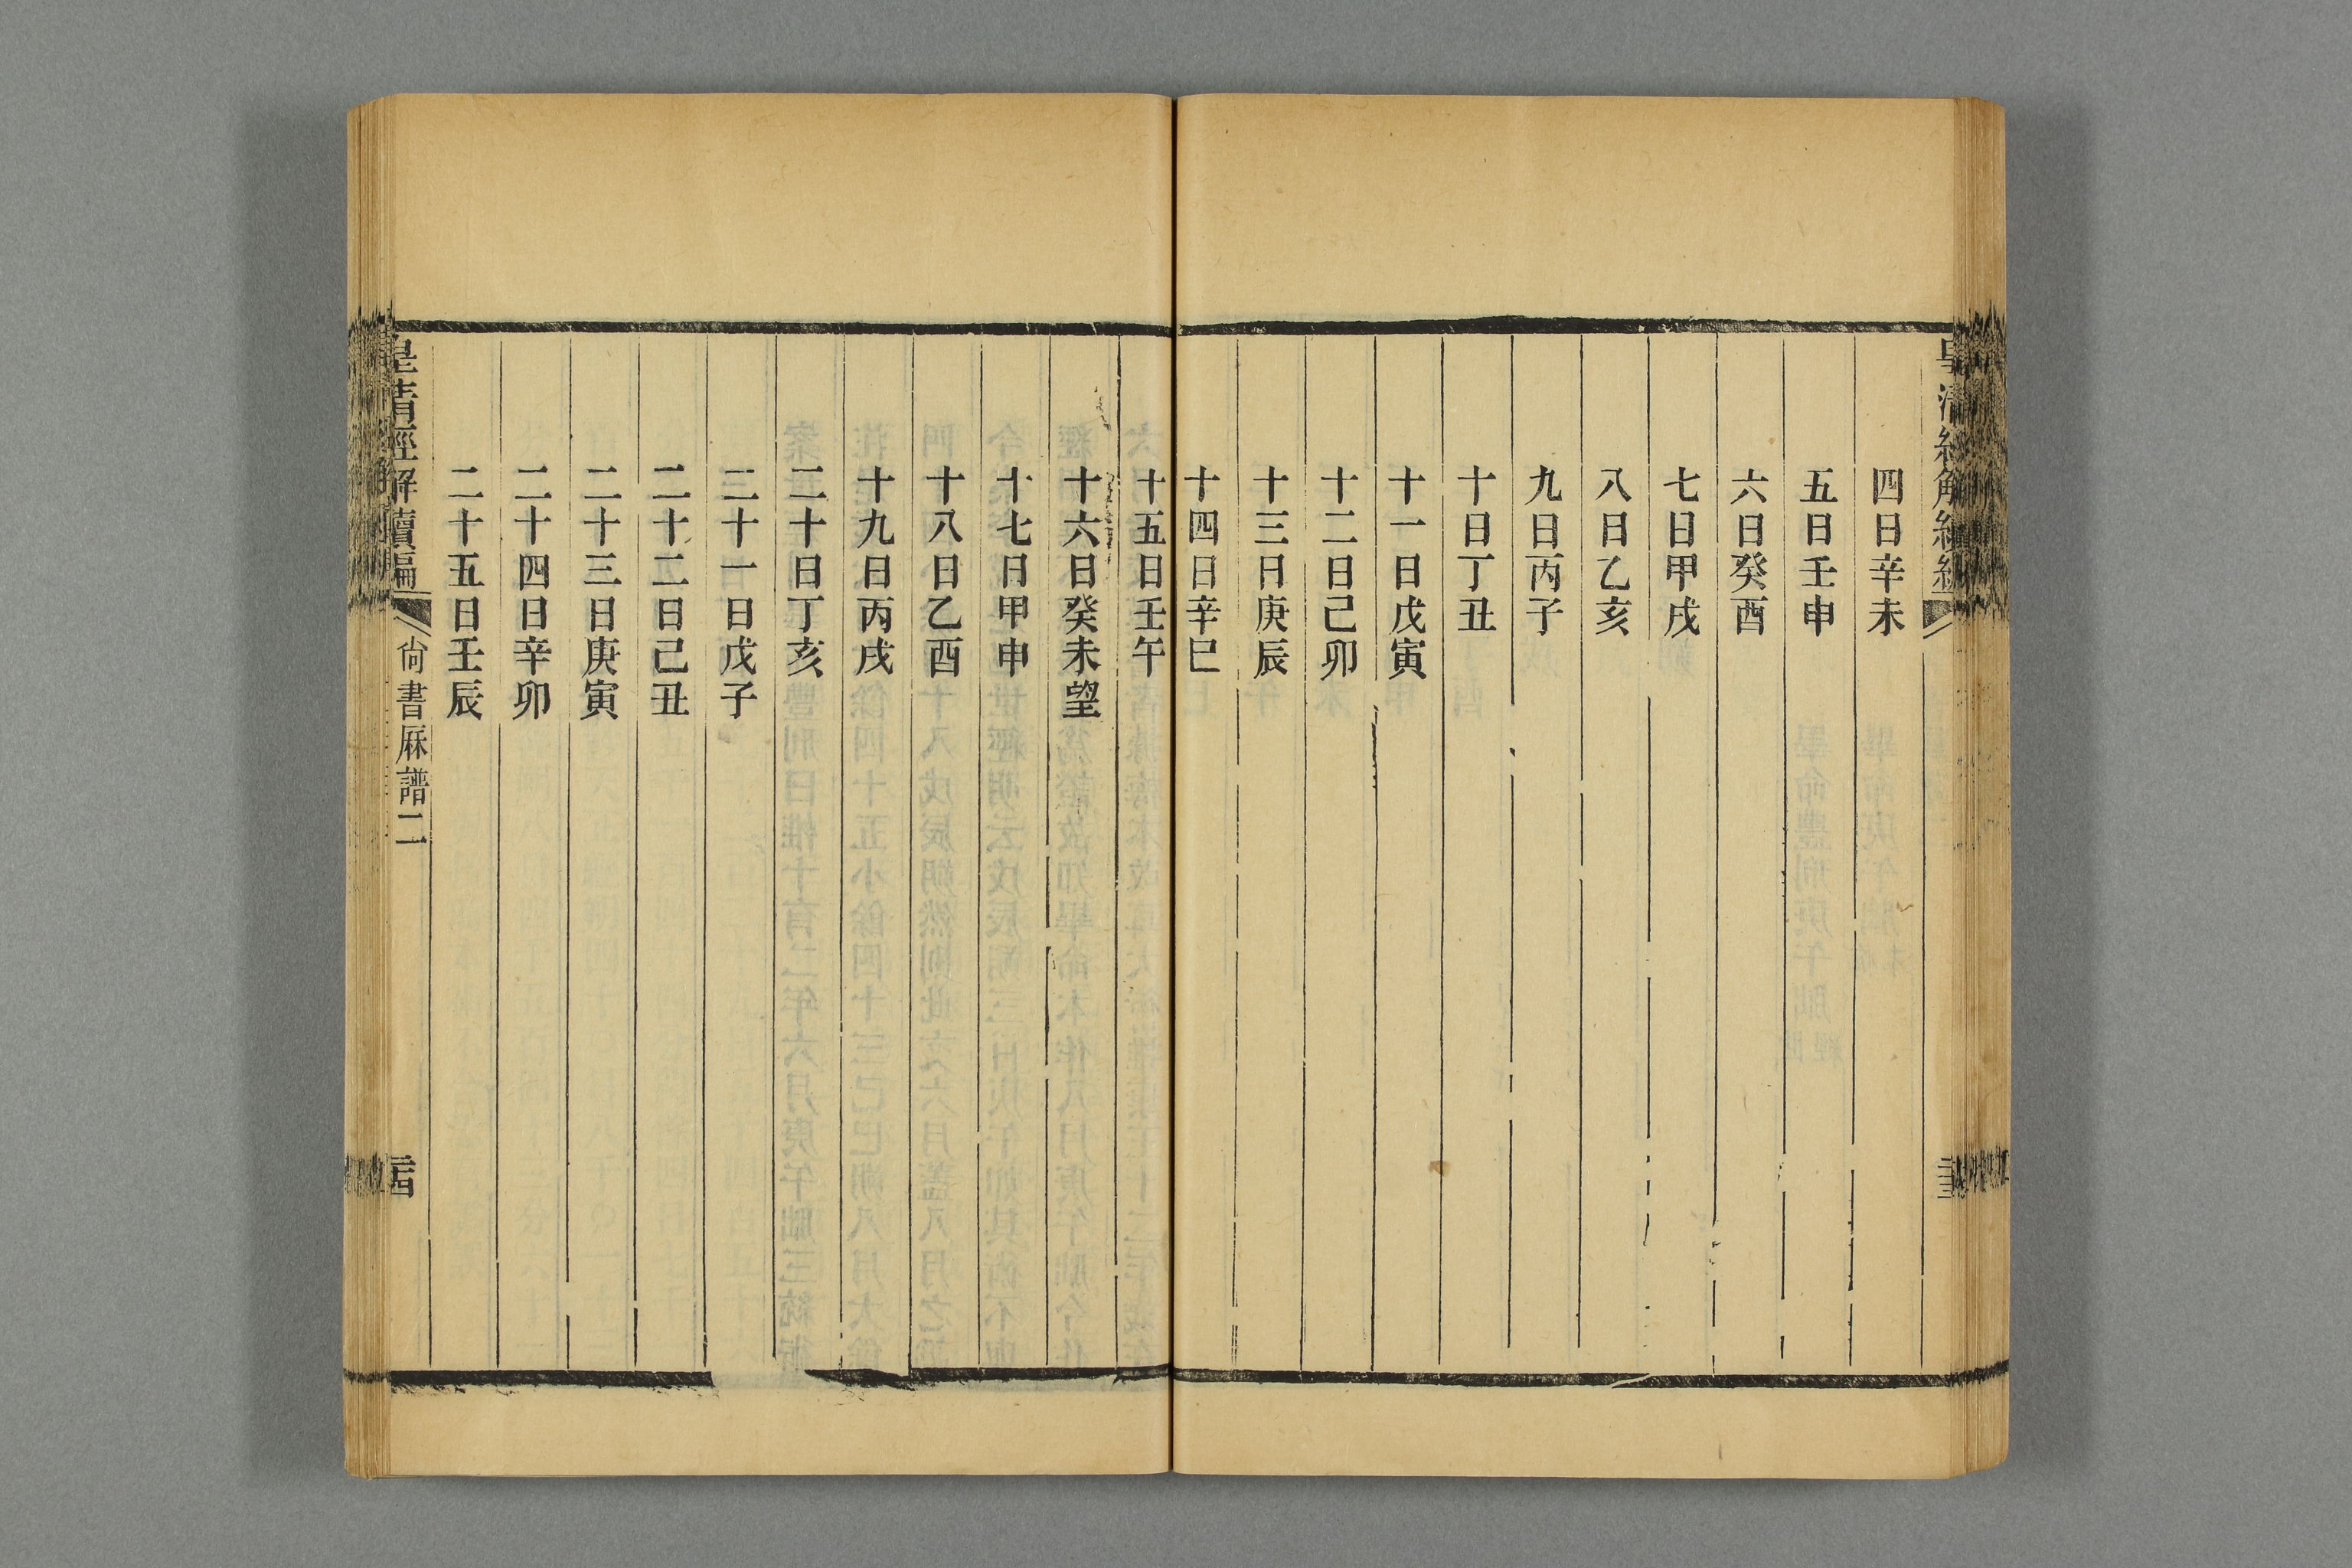 四日辛未
五日壬申
六日癸酉
七日甲戌
八日乙亥
九日丙子
十日丁丑
十一日戊寅
十二日己卯
十三日庚辰
十四日辛巳
十五日壬午
十六日癸未望
十七日甲申
十八日乙酉
十九日丙戌
二十日丁亥
二十一日戊子
二十二日己丑
二十三日庚寅
二十四日辛卯
二十五日壬辰
皇清經解續編
尙書厤譜二